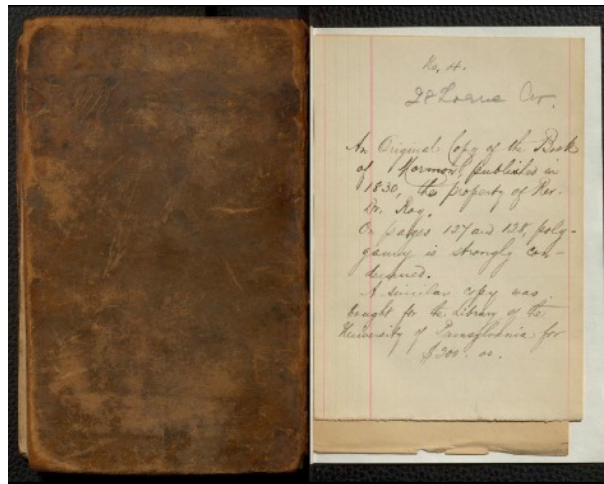 An Original Copy of the Book
of Mormon, published in
1830, the property of Rev.
Dr. Roy.
On pages 127 and 128, poly-
gamy is strongly con-
demned.
A similar copy was
bought for the Library of the
University of Pennsylvania for
$200.00.